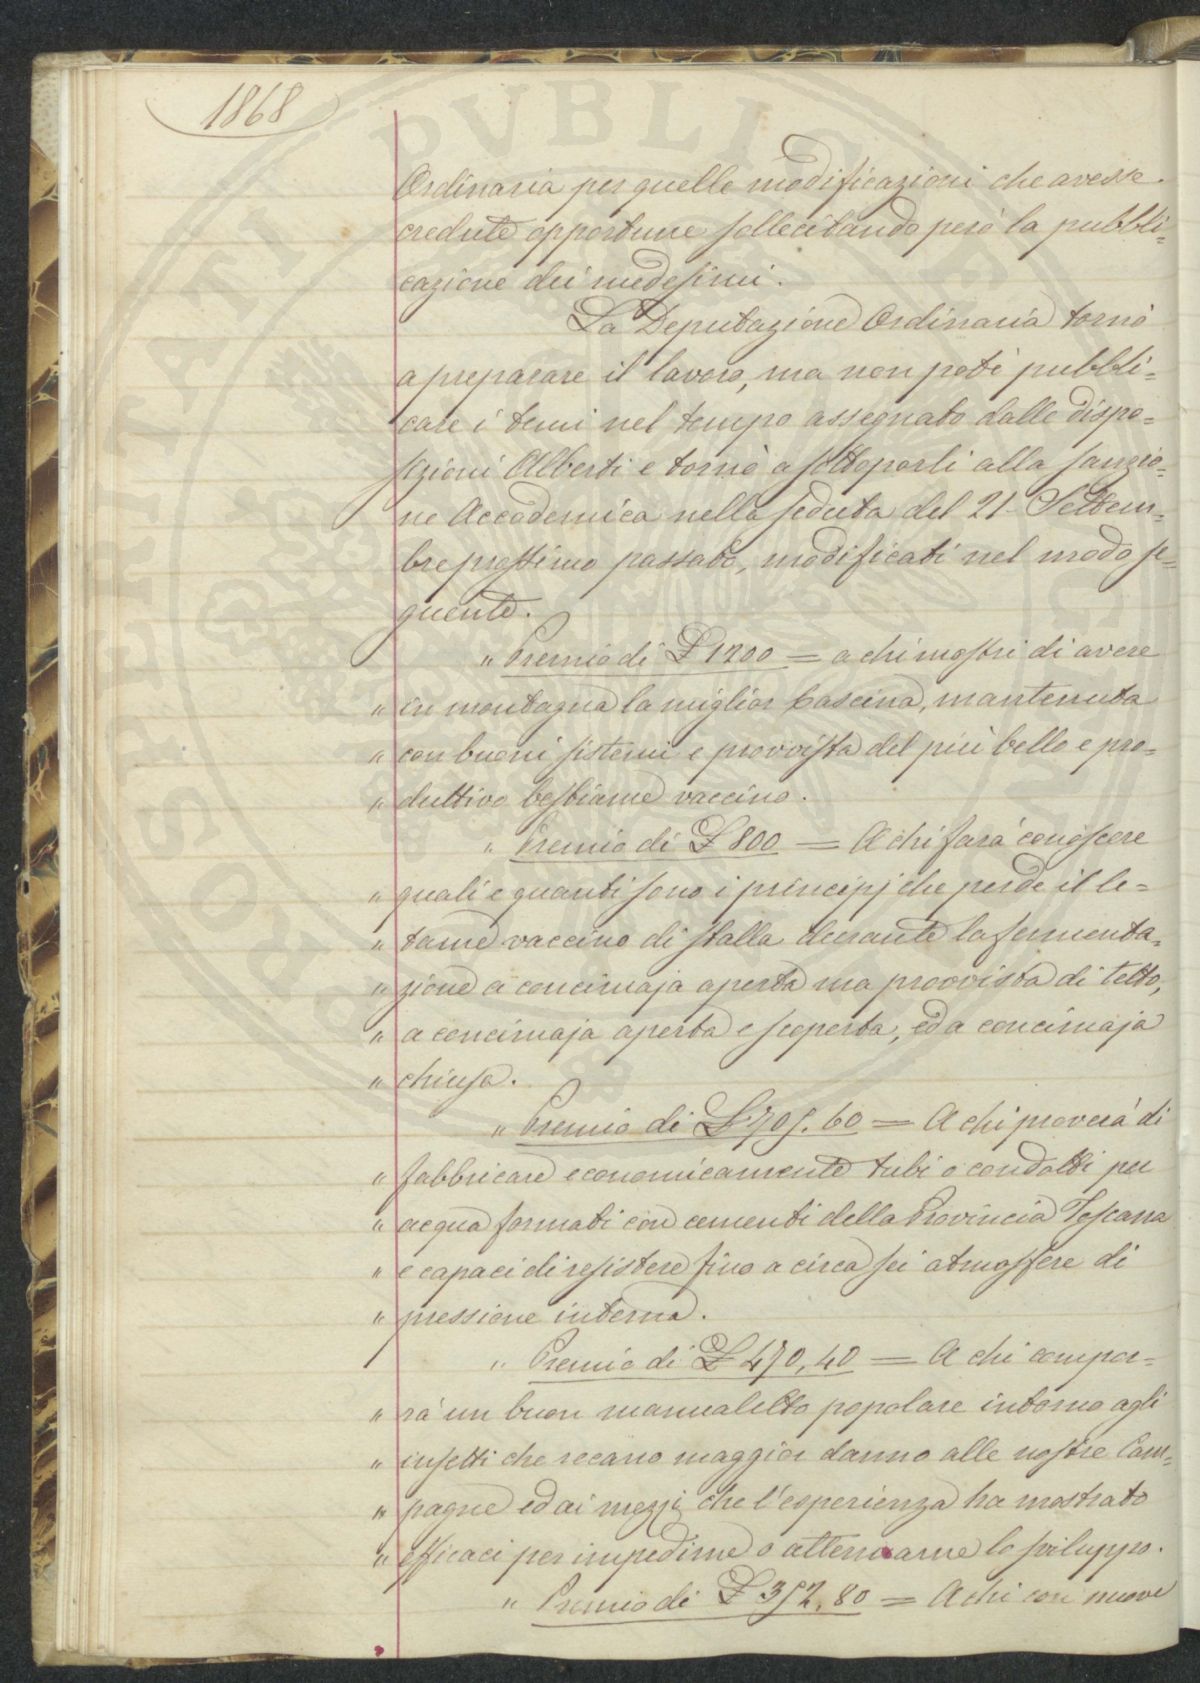 1868
Ordinaria per quelle modificazioni che avesse
credute opportune sollecitando però la pubbli=
cazione dei medesimi.
La Deputazione Ordinaria tornò
a preparare il lavoro, ma non potè pubbli=
care i temi nel tempo assegnato dalle dispo=
sizioni Alberti e tornò a sottoporli alla sanzio=
ne Accademica nella seduta del 21 Settem=
bre prossimo passato, modificati nel modo se=
guente.
" Premio di £ 1200 = a chi mostri di avere
" in montagna la miglior Cascina, mantenuta
" con buoni sistemi e provvista del più bello e pro=
" duttivo bestiame vaccino.
" Premio di £ 800 = A chi farà conoscere
" quali e quanti sono i principj che perde il le=
" tame vaccino di stalla durante la fermenta=
" zione a concimaja aperta ma provvista di tetto,
" a concimaja aperta e scoperta, ed a concimaja
" chiusa.
" Premio di £ 705. 60 = A chi proverà di
" fabbricare economicamente tubi o condotti per
" acqua formati con cementi della Provincia Toscana
" e capaci di resistere fino a circa sei atmosfere di
" pressione interna.
" Premio di £ 470, 40 = A chi compor=
" rà un buon manualetto popolare intorno agli
" insetti che recano maggior danno alle nostre Cam=
" pagne ed ai mezzi che l'esperienza ha mostrato
" efficaci per impedirne o attenuarne lo sviluppo.
" Premio di £ 352. 80 = A chi con nuove
PVBLICAE
PROSPERITATI